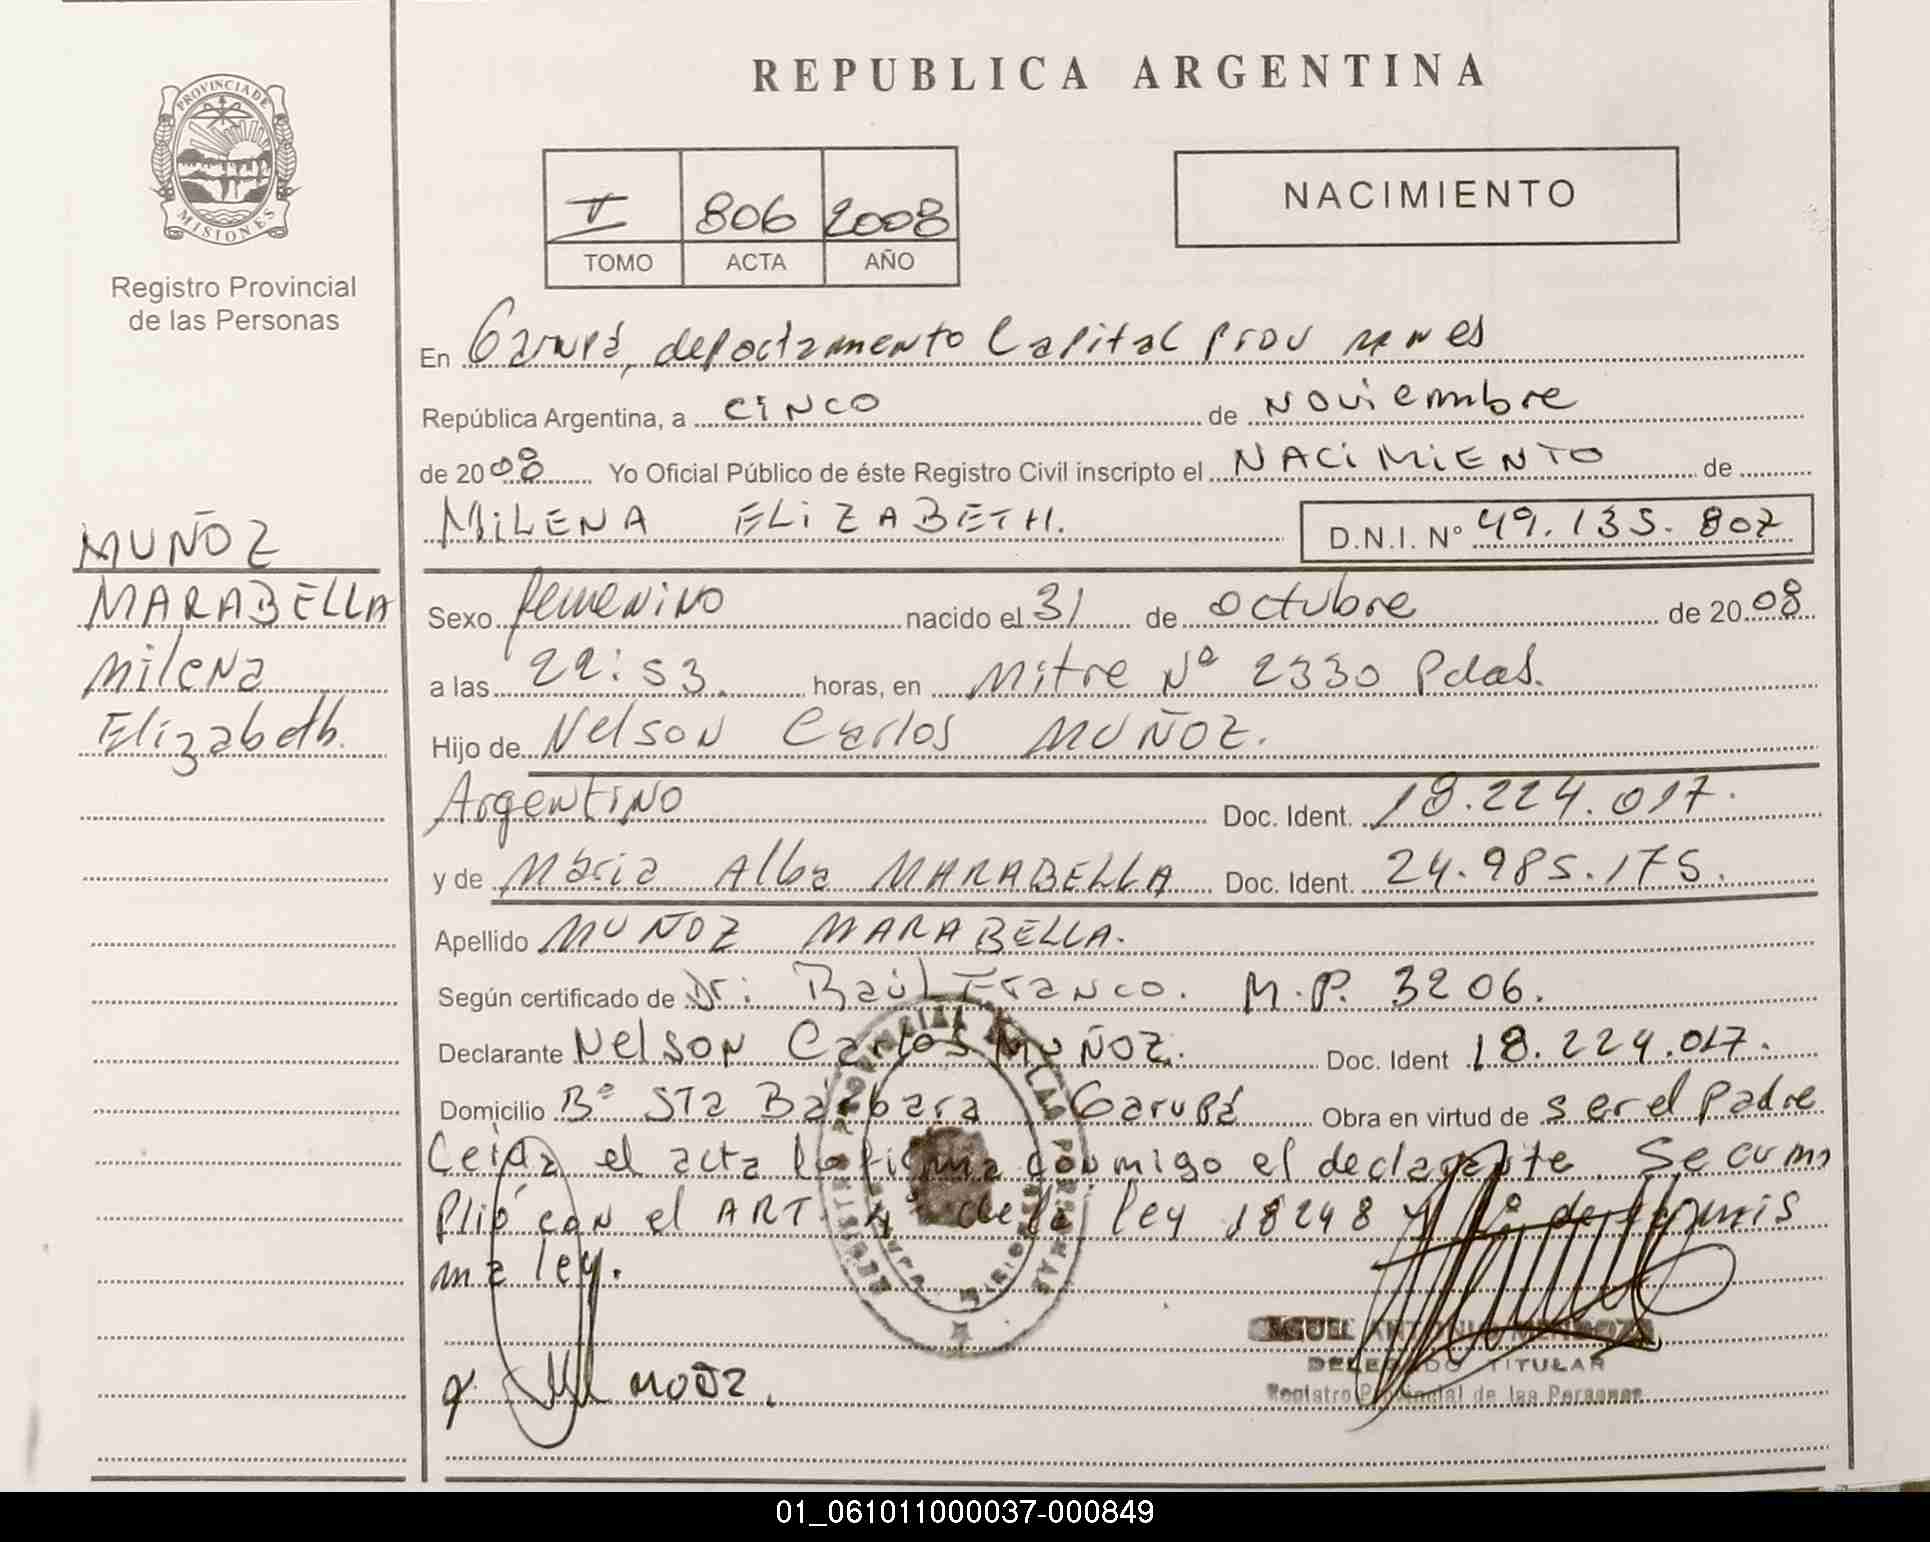 REPUBLICA ARGENTINA
PROVINCIA DE
MISIONES
Registro Provincial
de las Personas
I 806 2008
TOMO ACTA AÑO
NACIMIENTO
En Garupá, departamento Capital Prov mnes
República Argentina, a cinco de noviembre
de 2008 Yo Oficial Público de éste Registro Civil inscripto el NACIMIENTO de
MILENA ELIZABETH. D.N.I. N° 49.135.807
MUÑOZ
MARABELLA
Milena
Elizabeth.
Sexo femenino nacido el 31 de octubre de 2008
a las 22:53. horas, en Mitre Nº 2330 Pdas.
Hijo de Nelson Carlos MUÑOZ.
Argentino Doc. Ident. 18.224.017.
y de Maria Alba MARABELLA Doc. Ident. 24.985.175.
Apellido MUÑOZ MARABELLA.
Según certificado de Dr: Raúl Franco. M.P. 3206.
Declarante Nelson Carlos MUÑOZ. Doc. Ident 18.224.017.
Domicilio Bº STa Bárbara Garupá Obra en virtud de ser el Padre
Leida el acta la firma conmigo el declarante. Se cum
Plió con el ART. de la ley 18248 y de la mis
ma ley.
ANTONIO MENDOZA
DELEGADO TITULAR
Registro Provincial de las Personas
01_061011000037-000849